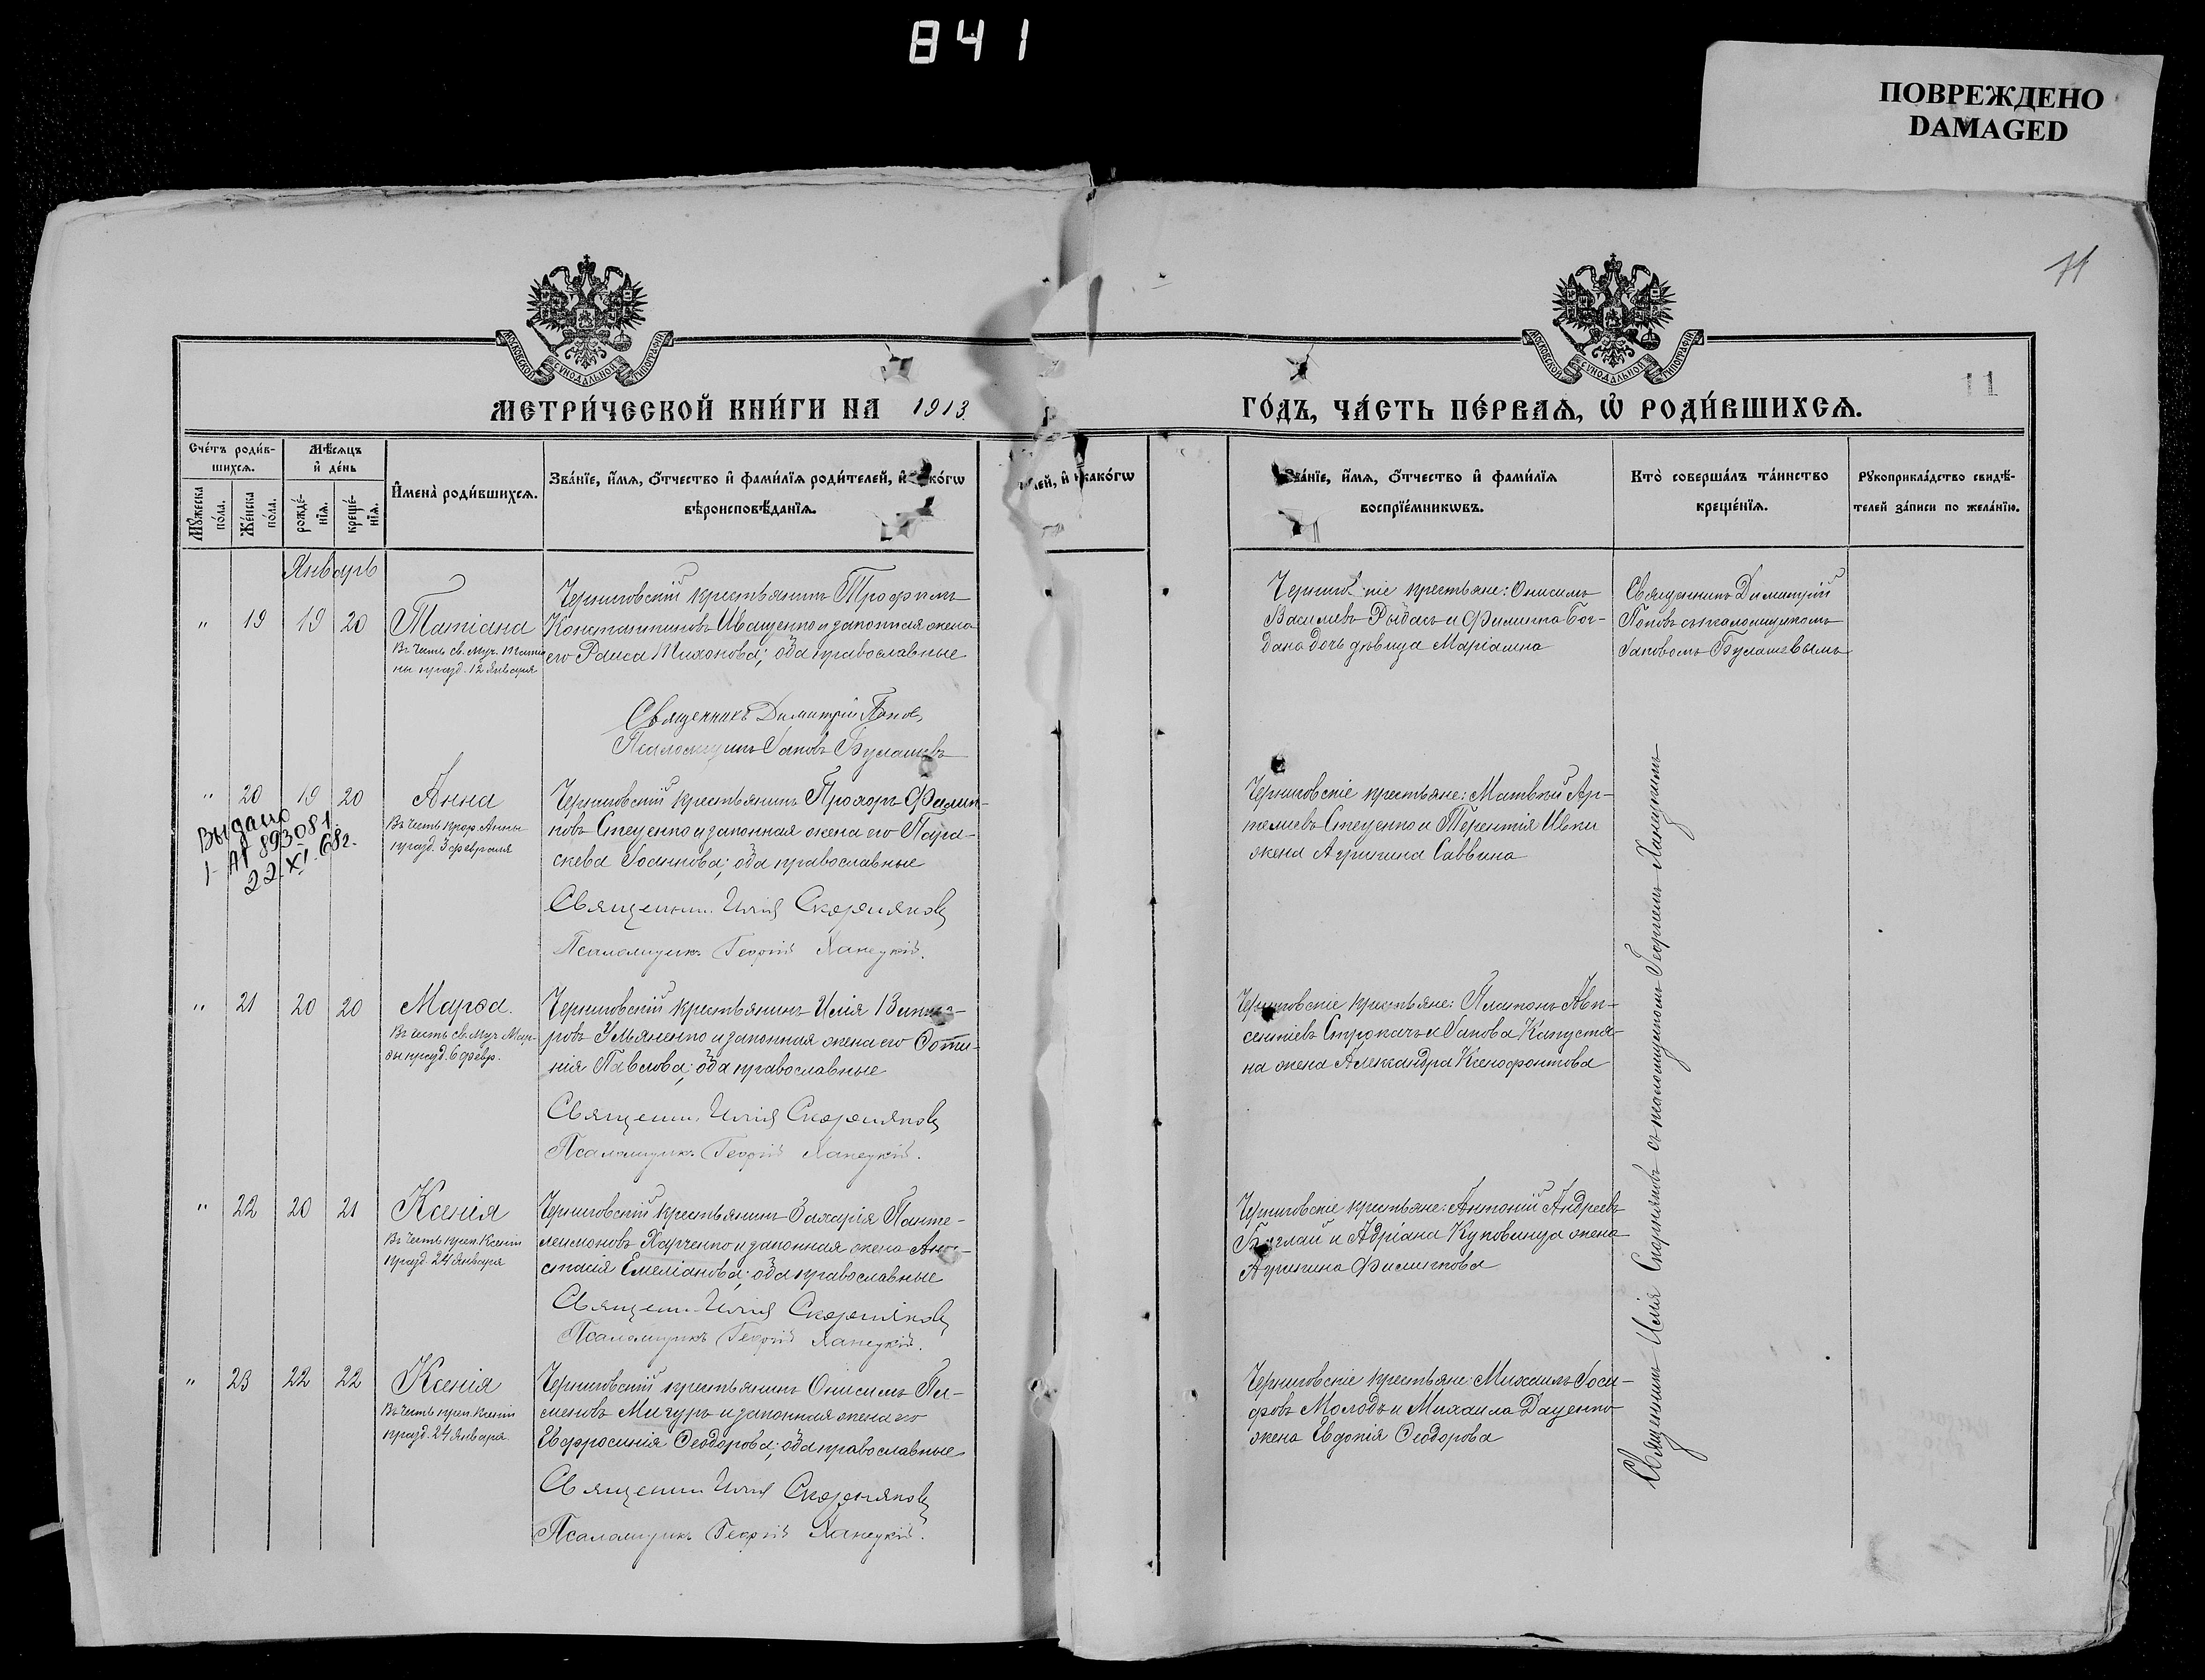 841
ПОВРЕЖДЕНО
DAMAGED
11
МОСКОВСКОЙ СѴНОДАЛЬНОЙ ТИПОГРАФІИ
МОСКОВСКОЙ СѴНОДАЛЬНОЙ ТИПОГРАФІИ
МЕТРИ́ЧЕСКОЙ КНИ́ГИ НА 1913
ГО́ДЪ, ЧА́СТЬ ПЕ́РВАѦ, Ѡ҆ РОДИ́ВШИХСѦ.
Сче́тъ роди́в-
шихсѧ.
Мѣ́сѧцъ
и҆ де́нь
Мꙋ́жеска
по́ла.
Же́нска
по́ла.
рожде́-
нїѧ.
креще́-
нїѧ.
И҆мена̀ роди́вшихсѧ.
Зва́нїе, и҆́мѧ, ѻ҆́тчество и҆ фами́лїѧ роди́телей, и҆ ко́гѡ
вѣроисповѣ́данїѧ.
лей, и҆ како́гѡ
Зва́нїе, и҆́мѧ, ѻ҆́тчество и҆ фами́лїѧ
воспрїе́мникѡвъ.
Кто̀ соверша́лъ та́инство
креще́нїѧ.
Рꙋкоприкла́дство свидѣ́-
телей за́писи по жела́нїю.
Январь
" 19 19 20 Татіана
Въ честь св. муч. Татіа
ны празд. 12 Января
Черниговскій крестьянинъ Трофимъ
Константиновъ Иващенко и законная жена
его Раиса Тихонова; оба православные
Священникъ Димитрій Попов
Псаломщикъ Іаковъ Булашевъ
Василіевъ Рыбасъ и Филиппа Бог-
дана дочь дѣвица Маріамна
Священникъ Димитрій
Поповъ съ псаломщикомъ
Іаковомъ Булашевымъ
" 20 19 20 Анна
Въ честь прор. Анны
празд. 3 февраля
Выдано
I-АП 893081
22.XI.68г.
Черниговскій крестьянинъ Прохоръ Филип-
повъ Стеценко и законная жена его Пара-
скева Іоаннова; оба православные
Священник Илія Скорняковъ
Псаломщикъ Георгій Ханецкій.
Черниговскіе крестьяне: Матвѣй Ар-
темиевъ Стеценко и Терентія Ивки
жена Агрипина Саввина
" 21 20 20 Марѳа.
Въ честь св. муч. Мар-
ѳы празд. 6 февр.
Черниговскій крестьянинъ Илія
ровъ Ульяненко и законная жена его Фоти-
нія Павлова; оба православные
Священн. Илія Скорняковъ
Псаломщикъ Георгій Ханецкій.
Черниговскіе крестьяне: Платонъ Авк-
сентіевъ Строкачъ и Іакова Капустя-
на жена Александра Ксенофонтова
" 22 20 21 Ксенія
Въ честь преп. Ксеніи
празд. 24 Января
Черниговскій крестьянинъ Захарія Панте-
леимоновъ Харченко и законная жена Ана-
стасія Емеліанова; оба православные
Священн. Илія Скорняковъ
Псаломщикъ Георгій Ханецкій.
Черниговскіе крестьяне: Антоній Андреевъ
и Адріана Куповинца жена
Агрипина Филиппова
" 23 22 22 Ксенія
Въ честь преп. Ксеніи
празд. 24 Января.
Черниговскій крестьянинъ Онисимъ Пи-
меновъ Мигуръ и законная жена его
Евфросинія Ѳеодорова; оба православные
Священн Илія Скорняковъ
Псаломщикъ Георгій Ханецкій.
Черниговскіе крестьяне: Михаилъ Іоси-
фовъ Молодъ и Михаила Даценко
жена Евдокія Ѳеодорова
Священникъ Илія Скорняковъ съ псаломщикомъ Георгіемъ Ханецкимъ